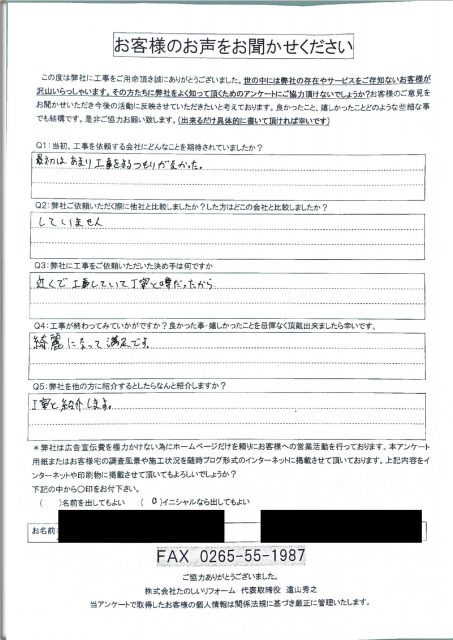 お客様のお声をお聞かせください
この度は弊社に工事をご用命頂き誠にありがとうございました。世の中には弊社の存在やサービスをご存知ないお客様が
沢山いらっしゃいます。その方たちに弊社をよく知って頂くためのアンケートにご協力頂けないでしょうか?お客様のご意見を
お聞かせいただき今後の活動に反映させていただきたいと考えております。良かったこと、嬉しかったことどのような些細な事
でも結構です。是非ご協力お願い致します。(出来るだけ具体的に書いて頂ければ幸いです)
Q1:当初、工事を依頼する会社にどんなことを期待されていましたか?
最初はあまり工事をするつもりがなかった。
Q2:弊社ご依頼いただく際に他社と比較しましたか?した方はどこの会社と比較しましたか?
していません
Q3:弊社に工事をご依頼いただいた決め手は何ですか
近くで工事していて丁寧と噂だったから
Q4:工事が終わってみていかがですか?良かった事・嬉しかったことを忌憚なく頂戴出来ましたら幸いです。
綺麗になって満足です。
Q5:弊社を他の方に紹介するとしたらなんと紹介しますか?
丁寧と紹介します。
*弊社は広告宣伝費を極力かけない為にホームページだけを頼りにお客様への営業活動を行っております。本アンケート
用紙またはお客様宅の調査風景や施工状況を随時ブログ形式のインターネットに掲載させて頂いております。上記内容をイ
ンターネットや印刷物に掲載させて頂いてもよろしいでしょうか?
下記の中から〇印をお付下さい。
( )名前を出してもよい (〇)イニシャルなら出してもよい
お名前:
FAX 0265-55-1987
ご協力ありがとうございました。
株式会社たのしいリフォーム 代表取締役 遠山秀之
当アンケートで取得したお客様の個人情報は関係法規に基づき厳正に管理いたします。